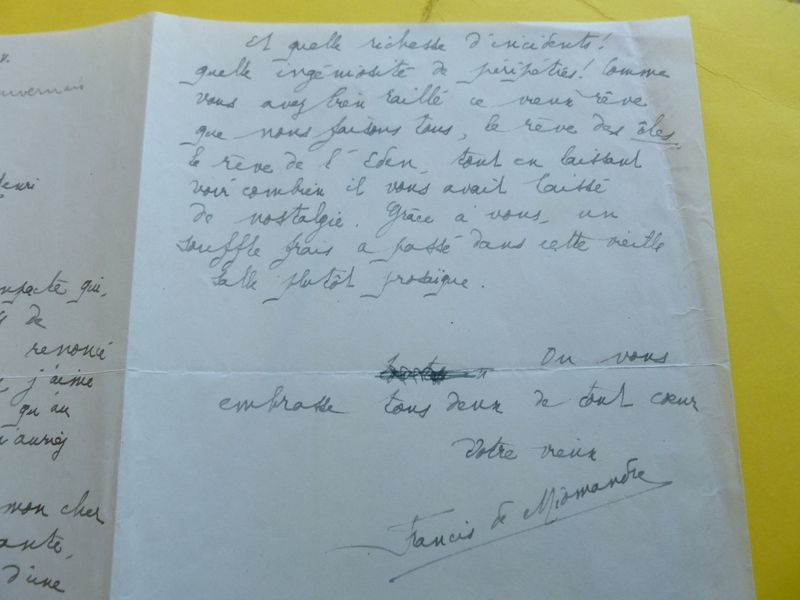 Et quelle richesse d'incidents!
quelle ingéniosité de péripéties! Comme
vous avez bien raillé ce vieux rêve
que nous faisons tous, le rêve des îles,
le rêve de l'Eden, tout en laissant
voir combien il vous avait laissé
de nostalgie. Grâce à vous, un
souffle frais a passé dans cette vieille
salle plutôt prosaïque.
On vous
embrasse tous deux de tout cœur
Votre vieux
Francis de Miomandre
enri
qui,
de
renoncé
j'aime
qu'au
mon cher
d'une